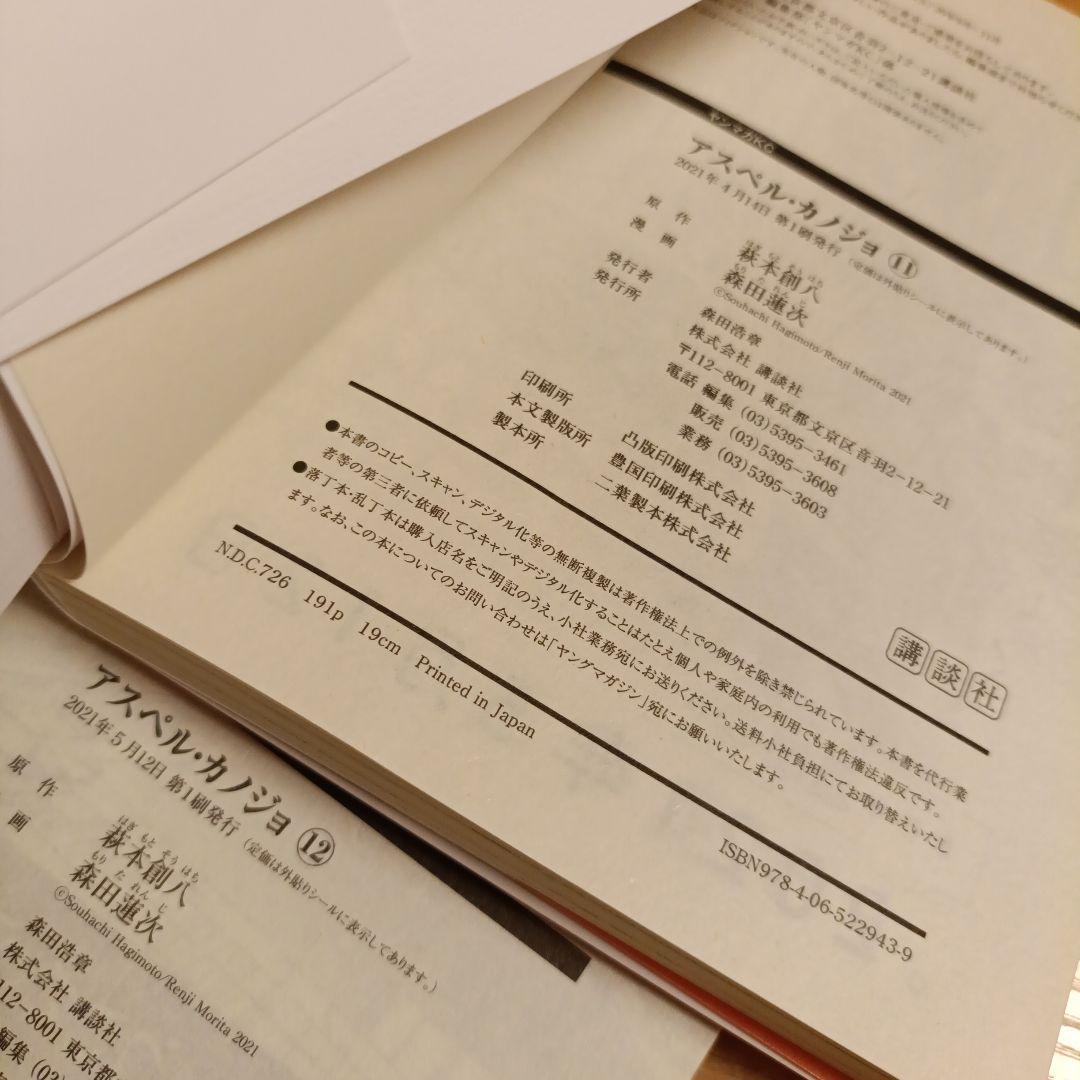 ヤンマガKC
アスペル・カノジョ ⑪
2021年4月14日 第1刷発行 (定価は外貼りシールに表示してあります。)
原作 萩本創八
はぎ もと そう はち
漫画 森田蓮次
もり た れん じ
©Souhachi Hagimoto/Renji Morita 2021
発行者 森田浩章
発行所 株式会社 講談社
〒112-8001 東京都文京区音羽2-12-21
電話 編集 (03)5395-3461
販売 (03)5395-3608
業務 (03)5395-3603
印刷所 凸版印刷株式会社
本文製版所 豊国印刷株式会社
製本所 二葉製本株式会社
●本書のコピー、スキャン、デジタル化等の無断複製は著作権法上での例外を除き禁じられています。本書を代行業
者等の第三者に依頼してスキャンやデジタル化することはたとえ個人や家庭内の利用でも著作権法違反です。
●落丁本・乱丁本は購入店名をご明記のうえ、小社業務宛にお送りください。送料小社負担にてお取り替えいたし
ます。なお、この本についてのお問い合わせは「ヤングマガジン」宛にお願いいたします。
講談社
N.D.C.726 191p 19cm Printed in Japan
ISBN978-4-06-522943-9
アスペル・カノジョ ⑫
2021年5月12日 第1刷発行 (定価は外貼りシールに表示してあります。)
原作
はぎ もと そう はち
萩本創八
画
もり た れん じ
森田蓮次
©Souhachi Hagimoto/Renji Morita 2021
森田浩章
株式会社 講談社
112-8001 東京都
編集 (03)